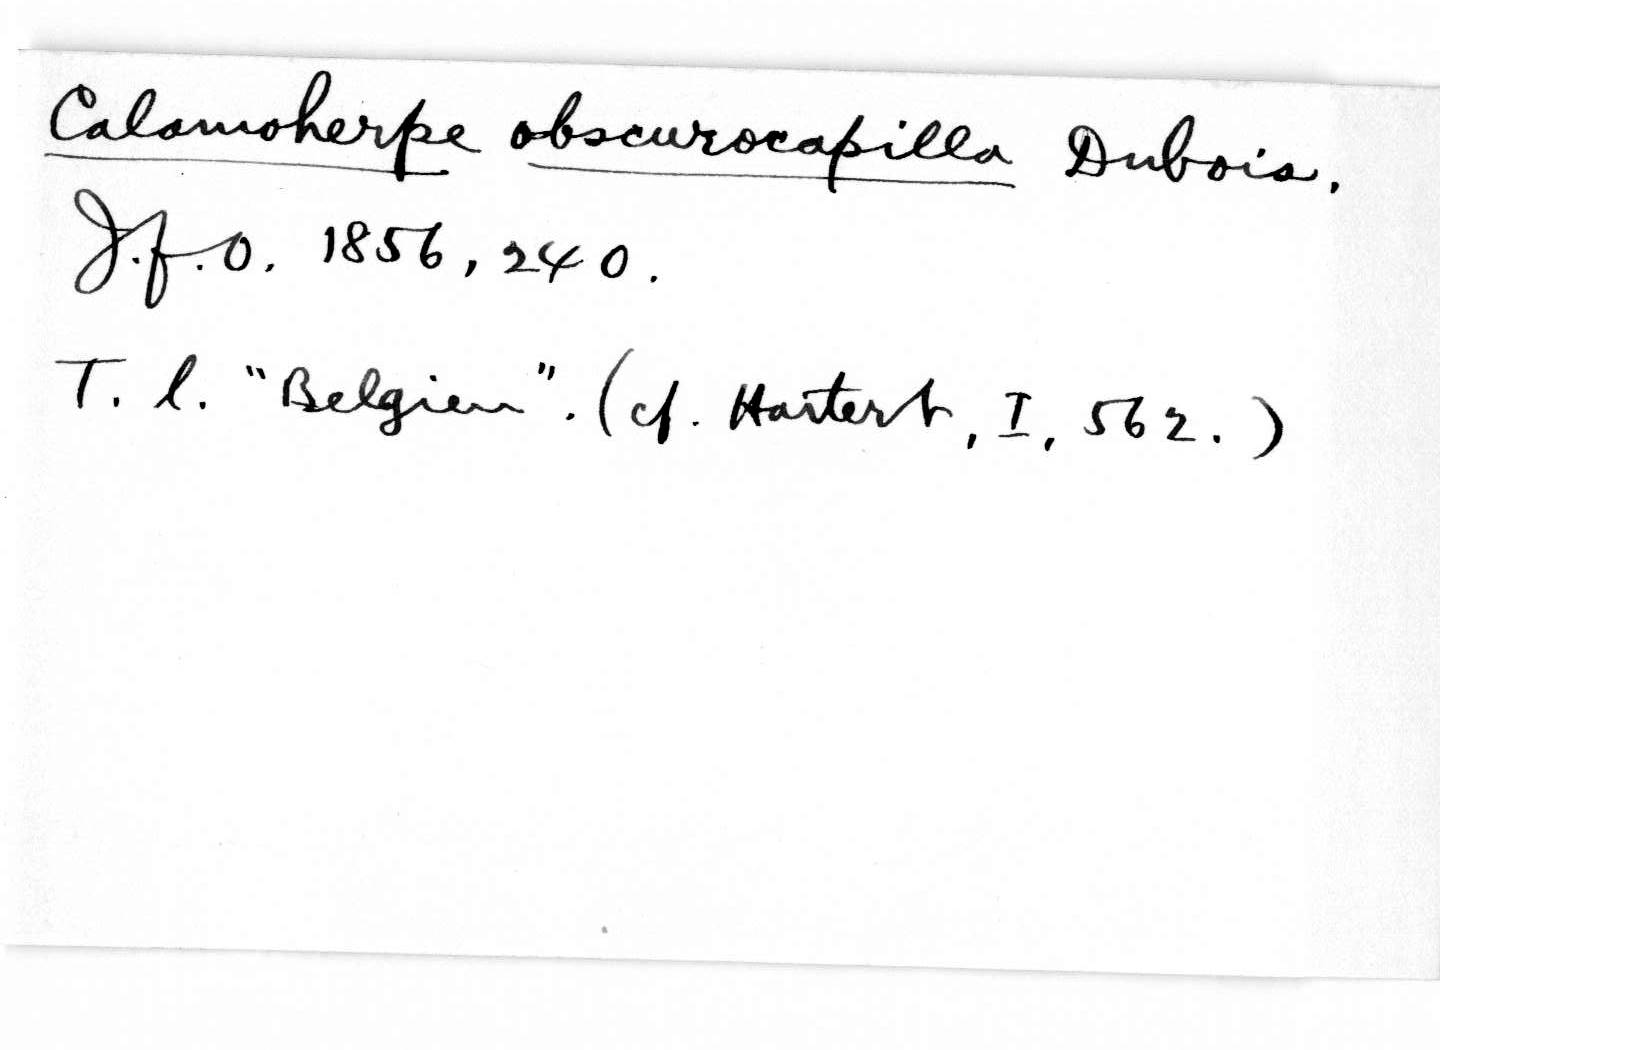 Calamoherpe obscurocapilla Dubois.
J.f.O. 1856, 240.
T. l. "Belgien". (cf. Hartert, I, 562.)